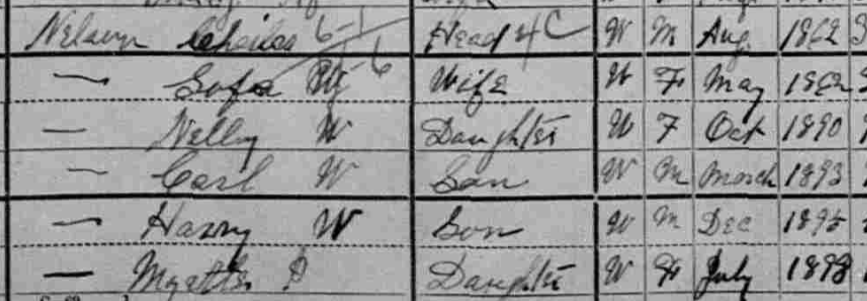 Nelson Charles Head W M Aug 1862
— Sofa W Wife W F May 1862
— Nelly W Daughter W F Oct 1890
— Carl W Son W M March 1893
— Harry W Son W M Dec 1895
— Daughter W F July 1898